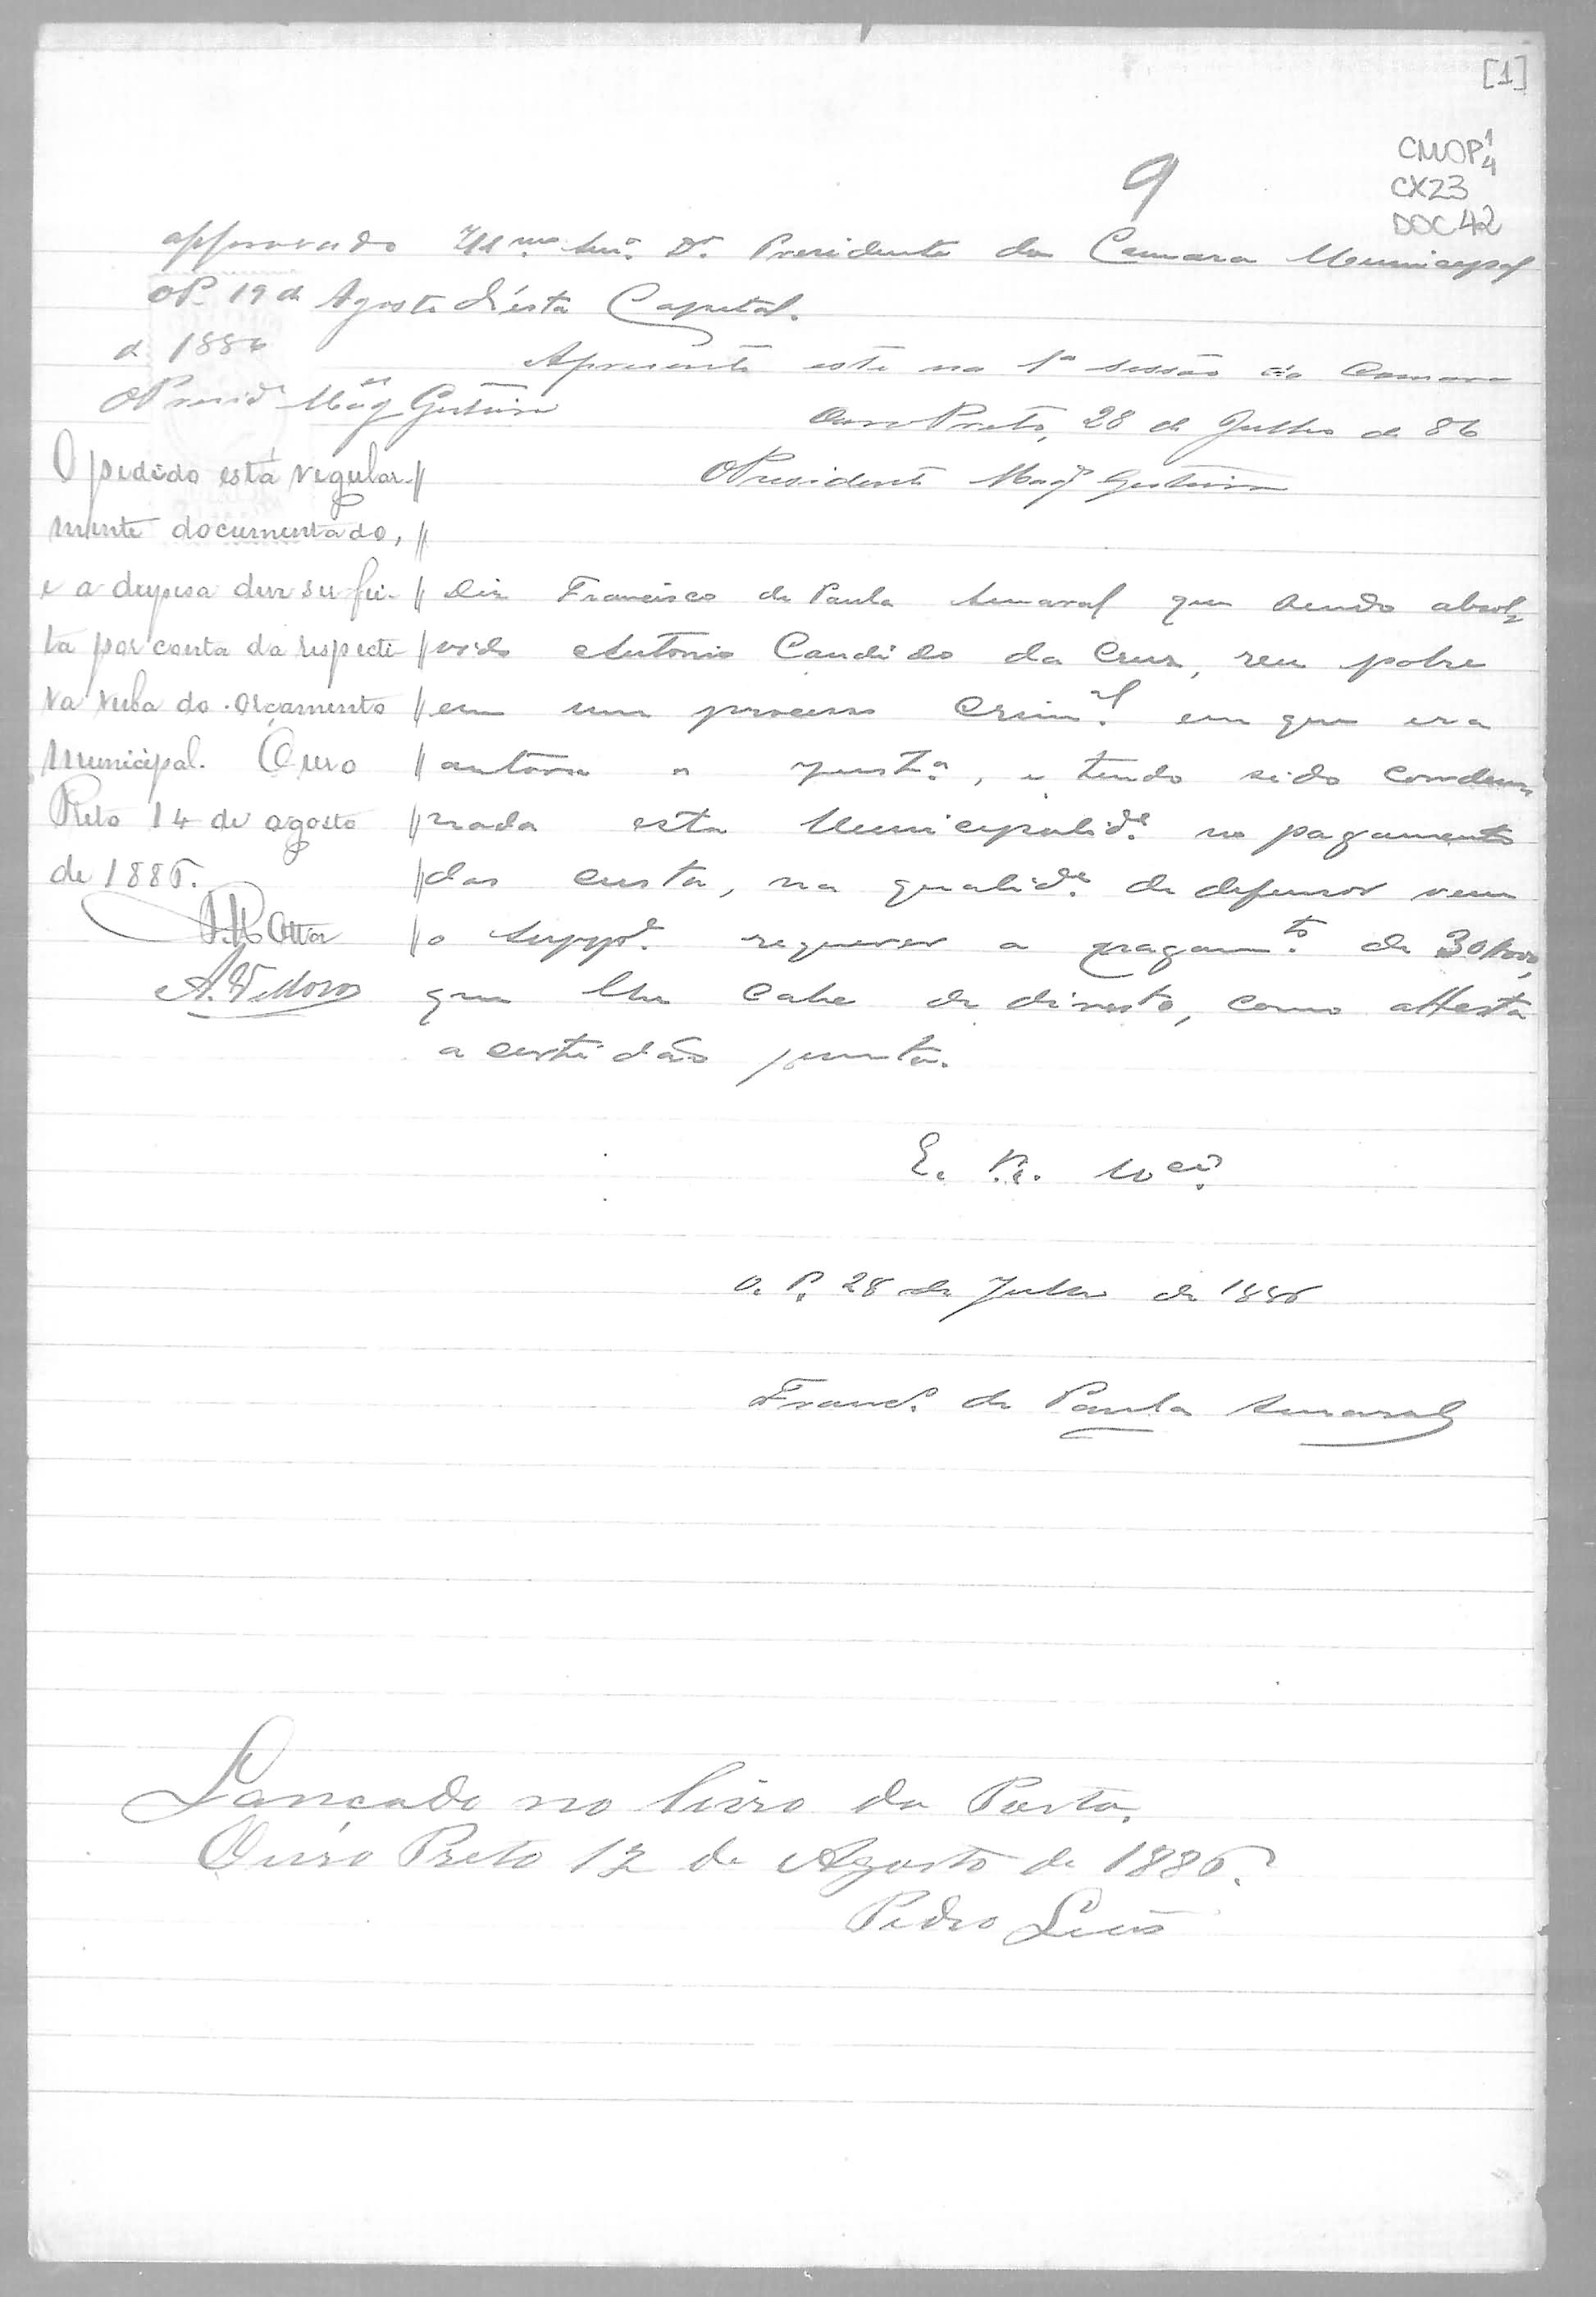 [1]
CMOP 1/4
CX23
DOC 42
9
approvado
OP. 19 de Agosto
de 1886
O Presid.e Mag
Ill.mo Snr. Dr. Presidente da Camara Municipal
d'esta Capital.
Apresente este na 1ª sessão da Camara
Ouro Preto, 28 de Julho de 86
O Presidente Mag
O pedido está regular-
mente documentado,
e a despesa deve ser fei-
ta por conta da respecti-
va verba do orçamento
Municipal. Ouro
Preto 14 de agosto
de 1886.
Diz Francisco de Paula Amaral que sendo absol-
vido Antonio Candido da Cruz, reu pobre
em um processo crim.al em que era
autora a just.a, e tendo sido condem-
nada esta Municipalid.e no pagamento
das custa, na qualid.e de defensor vem
o Supp.e requerer o pagam.to de 30$000,
que lhe cabe de direito, como attesta
a certidão junta.
E. R. M.cê
O. P. 28 de Julho de 1886
Franc.o de Paula Amaral
Lançado no livro da Porta.
Ouro Preto 12 de Agosto de 1886.
Pedro Luis